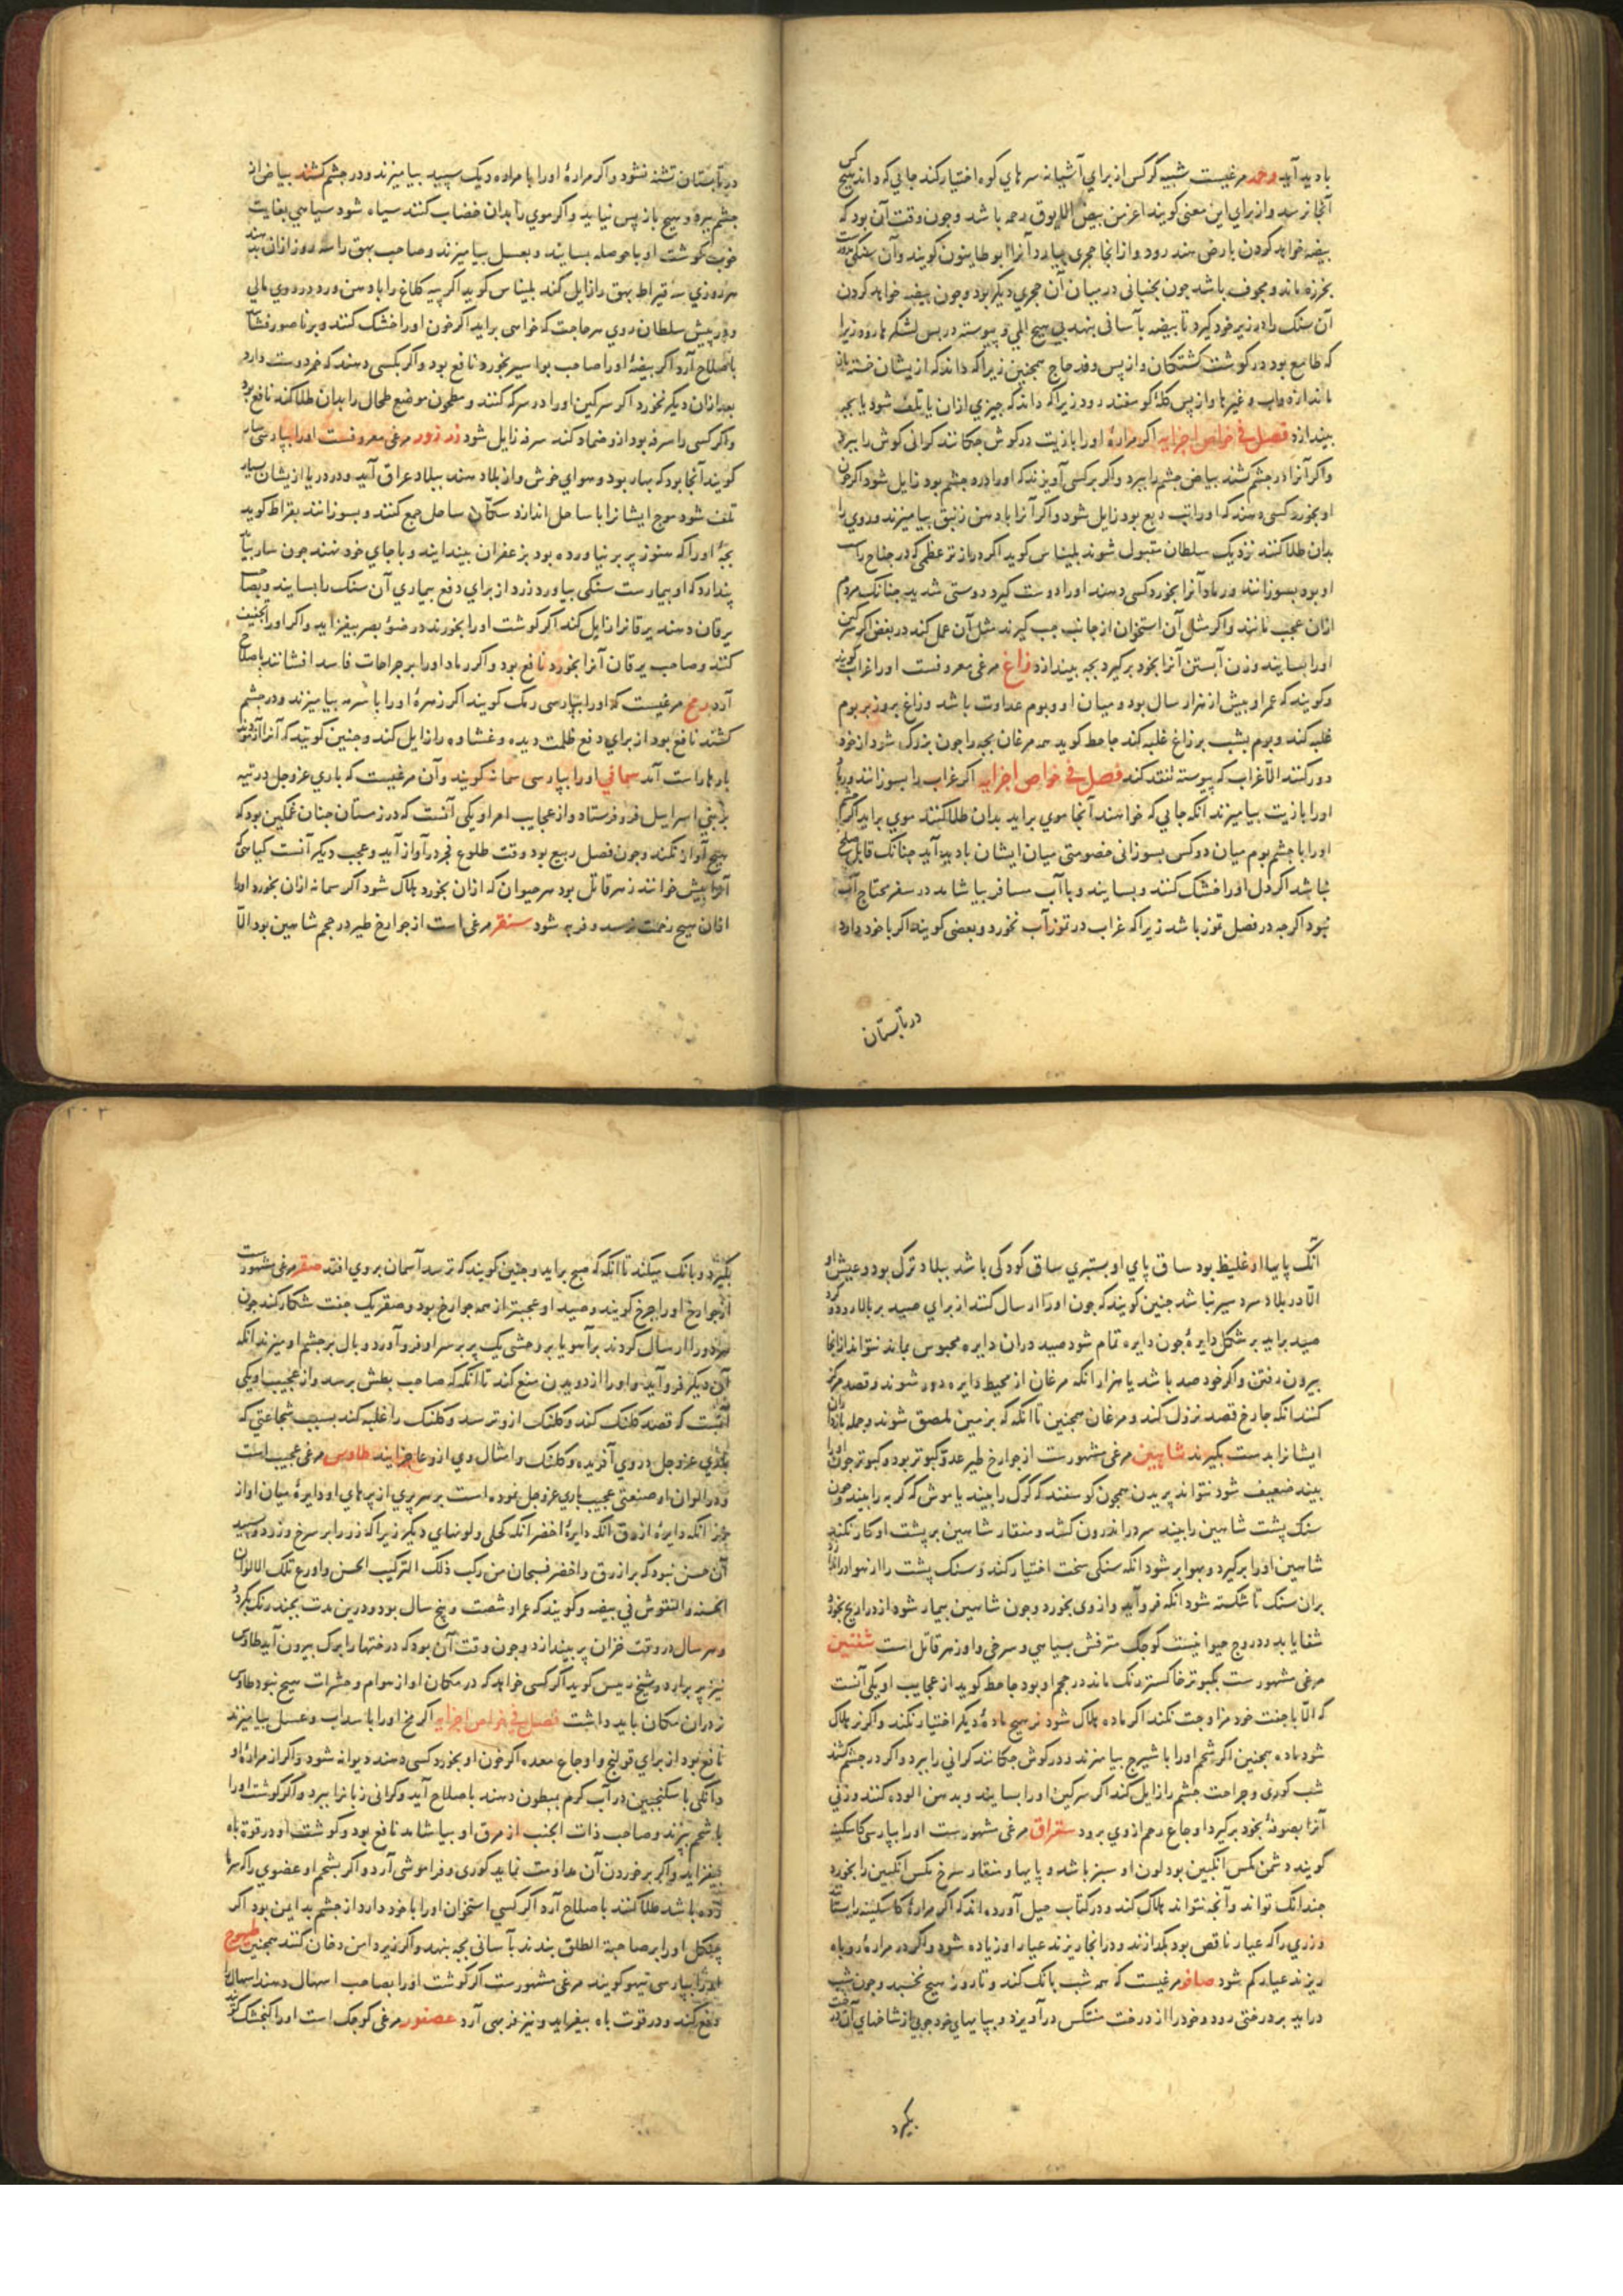 باديد آيد رخمه مرغيست شبيه كركس از براي آشيانه سرهاي كوه اختيار كند جائي كه داند هيچ كس
آنجا نرسد و از براي اين معنى كويند اعز من بيض الانوق رحمه باشد و جون وقت آن بود كه
بيضه خواهد كردن بارض هند رود و از انجا حجرى بيارد آنرا ابو طاينون كويند و آن سنكى بود
بخرزه ماند و مجوف باشد جون بجنبانى در ميان آن حجري ديكر بود و جون بيضه خواهد كردن
آن سنك را در زير خود كيرد تا بيضه بآسانى بنهد بى هيچ المى و پيوسته در پس لشكرها رود زيرا
كه طامع بود در كوشت كشتكان و از پس وفد حاج همچنين زيرا كه داند كه از ايشان خسته باز
ماند از دواب و غيرها و از پس كله كوسفند رود زيرا كه داند كه چيزي ازان يا تلف شود يا بجه
بيندازد فصل في خواص اجزايه اكر مراره اورا بازيت در كوش جكانند كرانى كوش را ببرد
و اكر آنرا در جشم كشند بياض جشم را ببرد و اكر بر كسى آويزند كه اورا درد جشم بود زايل شود اكر خون
او بخورد كسى دهند كه اورا تب ربع بود زايل شود و اكر آنرا با دهن زنبق بياميزند و روي را
بدان طلا كنند نزديك سلطان مقبول شوند بليناس كويد اكر دراز تر عظمى كه در جناح راست
او بود بسوزانند و رماد آنرا بخورد كسى دهند اورا دوست كيرد دوستى شديد جنانك مردم
ازان عجب مانند و اكر مثل آن استخوان از جانب جب كيرند مثل آن عمل كند در بغض اكر سركين
اورا بسايند و زن آبستن آنرا بخود بركيرد بجه بيندازد زاغ مرغى معروفست اورا غراب كويند
و كويند كه عمر او بيش از هزار سال بود و ميان او و بوم عداوت باشد و زاغ بروز بر بوم
غلبه كند و بوم بشب بر زاغ غلبه كند جاحظ كويد همه مرغان بجه را جون بزرك شود از خود
دور كنند الا غراب كه پيوسته تفقد كند فصل في خواص اجزايه اكر غراب را بسوزانند و رماد
اورا بازيت بياميزند آنكه جايي كه خواهند آنجا موي برايد بدان طلا كنند موي برايد اكر جشم
اورا با جشم بوم ميان دو كس بسوزانى خصومتى ميان ايشان باديد آيد جنانك قابل صلح
نباشد اكر دل اورا خشك كنند و بسايند و با آب مسافر بياشامد در سفر محتاج آب
نبود اكرجه در فصل تموز باشد زيرا كه غراب در تموز آب نخورد و بعضى كويند اكر با خود دارد
در تابستان
در تابستان تشنه نشود و اكر مراره اورا با مراره ديك سپيد بياميزند و در جشم كشند بياض از
جشم ببرد و هيچ باز پس نيايد و اكر موي را بدان خضاب كنند سياه شود سياهى بغايت
خوب كوشت او با حوصله بسايند و بعسل بياميزند و صاحب بهق را سه روز ازان بدهند
هر روزي سه قيراط بهق را زايل كند بليناس كويد اكر پيه كلاغ را با دهن ورد در روي مالى
و در پيش سلطان روي هر حاجت كه خواهى برايد اكر خون اورا خشك كنند و بر ناصور فشانند
باصلاح آرد اكر بيضه اورا صاحب بواسير بخورد نافع بود و اكر بكسى دهند كه خمر دوست دارد
بعد ازان ديكر نخورد اكر سركين اورا در سركه كنند و مطحون موضع طحال را بدان طلا كند نافع بود
و اكر كسى را سرفه بود ازو ضماد كند سرفه زايل شود زرزور مرغى معروفست اورا بپارسى سار
كويند آنجا بود كه بهار بود و هواي خوش و از بلاد هند ببلاد عراق آيد و در دريا از يشان بسيار
تلف شود موج ايشانرا با ساحل اندازد سكان ساحل جمع كنند و بسوزانند بقراط كويد
بجه اورا كه هنوز پر بر نياورده بود بزعفران بيندايند و باجاي خود نهند جون سار بيايد
پندارد كه او بيمارست سنكى بياورد زرد از براي دفع بيماري آن سنك را بسايند و بصاحب
يرقان دهند يرقانرا زايل كند اكر كوشت اورا بخورند در ضوء بصر بيفزايد و اكر اورا همجنين
كنند و صاحب يرقان آنرا بخورد نافع بود و اكر رماد اورا بر جراحات فاسد افشانند باصلاح
آرد رمح مرغيست كه اورا بپارسى رمك كويند اكر زهره اورا با سرمه بياميزند و در جشم
كشند نافع بود از براي دفع ظلمت ديده و غشاوه را زايل كند و جنين كويند كه آنرا آزمودند
بارها راست آمد سماني اورا بپارسى سمانه كويند و آن مرغيست كه باري عز و جل در تيه
بر بني اسرائيل فرو فرستاد و از عجايب امر او يكى آنست كه در زمستان جنان غمكين بود كه
هيچ آواز نكند و جون فصل ربيع بود وقت طلوع فجر در آواز آيد و عجب ديكر آنست كياهى
آنرا بيش خوانند زهر قاتل بود هر حيوان كه ازان بخورد هلاك شود اكر سمانه ازان بخورد اورا
ازان هيچ زحمت نرسد و فربه شود سنقر مرغى است از جوارح طير در حجم شاهين بود الا
آنك پايها او غليظ بود ساق پاي او بستبري ساق كودكى باشد ببلاد ترك بود و عيش او
الا در بلاد سرد سير نباشد جنين كويند كه جون اورا ارسال كنند از براي صيد بر بالا رود و كرد
صيد برايد بر شكل دايره جون دايره تمام شود صيد دران دايره محبوس بماند نتواند از انجا
بيرون رفتن و اكر خود صد باشد يا هزار انكه مرغان از محيط دايره دور شوند و قصد مركز
كنند انكه جارح قصد نزول كند و مرغان همچنين تا انكه كه بزمين ملصق شوند و جمله بازداران
ايشانرا بدست بكيرند شاهين مرغى مشهورست از جوارح طير عدو كبوتر بود و كبوتر جون اورا
بيند ضعيف شود نتواند پريدن همچون كوسفند كه كرك را بيند يا موش كه كربه را بيند و جون
سنك پشت شاهين را بيند سر در اندرون كشد و منقار شاهين بر پشت او كار نكند
شاهين اورا بركيرد و بهوا بر شود انكه سنكى سخت اختيار كند و سنك پشت را از هوا در اندازد
بران سنك تا شكسته شود انكه فرو آيد و از وى بخورد و جون شاهين بيمار شود از دراريح بخورد
شفا يابد و دروج حيوانيست كوجك مترفش بسياهي و سرخى و او زهر قاتل است شفنين
مرغى مشهورست بكبوتر خاكستر رنك ماند در حجم او بود جاحظ كويد از عجايب او يكى آنست
كه الا با جفت خود مزاوجت نكند اكر ماده هلاك شود نر هيچ ماده ديكر اختيار نكند و اكر نر هلاك
شود ماده همچنين اكر شحم اورا با شيرج بياميزند و در كوش جكانند كرانى را ببرد و اكر در جشم كشند
شب كورى و جراحت جشم را زايل كند اكر سركين اورا بسايند و بدهن آلوده كنند و زنى
آنرا بصوفه بخود بركيرد اوجاع رحم از وي برود سقراق مرغى مشهورست اورا بپارسى كاسكينه
كويند دشمن مكس انكبين بود لون او سبز باشد و پايها و منقار سرخ مكس انكبين را بخورد
جندانك تواند و آنجه نتواند هلاك كند و در كتاب حيل آورده اند كه اكر مراره كاسكينه را بستانند
و زري را كه عيار ناقص بود بكدازند و در انجا ريزند عيار او زياده شود و اكر در مراره روباه
ريزند عيار كم شود صافر مرغيست كه همه شب بانك كند و تا روز هيچ نخسبد و جون شب
درايد بر درختى رود و خود را از درخت منتكس در آويزد و بپايهاي خود جوبى از شاخهاي آن درخت
بكيرد
بكيرد و بانك ميكند تا انكه كه صبح برايد و جنين كويند كه ترسد آسمان بروي افتد صقر مرغى مشهورست
از جوارح اورا جرخ كويند و صيد او عجبتر از همه جوارح بود و صقر يك جفت شكار كند جون
هر دو را ارسال كردند بر آهو يا بر وحشى يك پر بر سر او فرو آورد و بال بر جشم او ميزند انكه
آن ديكر فرو آيد و اورا از دويدن منع كند تا انكه كه صاحب بطش برسد و از عجيب او يكى
آنست كه قصد كلنك كند و كلنك ازو ترسد و كلنك را غلبه كند بسبب شجاعتي كه
خداي عز و جل در وي آفريده و كلنك و امثال وي ازو عاجز آيند طاوس مرغى عجيب است
و در الوان او صنعتى عجيب باري عز و جل نموده است بر سر پري از پرهاي او دايره ميان او از
زر انكه دايره ازرق انكه دايره اخضر انكه كحلى و لونهاي ديكر زيرا كه زر را بر سرخ و زرد و سپيد
آن حسن نبود كه بر ازرق و اخضر فسبحان من ركب ذلك التركيب الحسن و اورع تلك الالوان
الحسنه و النقوش في بيضه و كويند كه عمر او شصت و پنج سال بود و درين مدت بجند رنك بكردد
و هر سال در وقت خزان پر بيندازد و جون وقت آن بود كه درختها را برك بيرون آيد طاوس
نيز پر برارد و شيخ رئيس كويد اكر كسى خواهد كه در مكان او از هوام و حشرات هيچ نبود طاوس
نر دران مكان بايد داشت فصل في خواص اجزايه اكر مخ اورا با سداب و عسل بياميزند
نافع بود از براي قولنج و اوجاع معده اكر خون او بخورد كسى دهند ديوانه شود و اكر از مراره او
دانكى با سكنجبين در آب كرم بمبطون دهند باصلاح آيد و كرانى زبانرا ببرد و اكر كوشت اورا
با شحم بپزند و صاحب ذات الجنب از مرق او بياشامد نافع بود و كوشت او در قوة باه
بيفزايد و اكر بر خوردن آن مداومت نمايد كورى و فراموشى آرد و اكر بشحم او عضوي را كه سرما
زده باشد طلا كنند باصلاح آرد اكر كسي استخوان اورا با خود دارد از جشم بد ايمن بود اكر
جنكل اورا بر صاحبة الطلق بندند بآسانى بجه بنهد و اكر زير دامن دخان كنند همجنين طيهوج
اورا بپارسى تيهو كويند مرغى مشهورست اكر كوشت اورا بصاحب اسهال دهند اسهال را
دفع كند و در قوت باه بيفزايد و نيز فربهى آرد عصفور مرغى كوجك است اورا كنجشك كويند